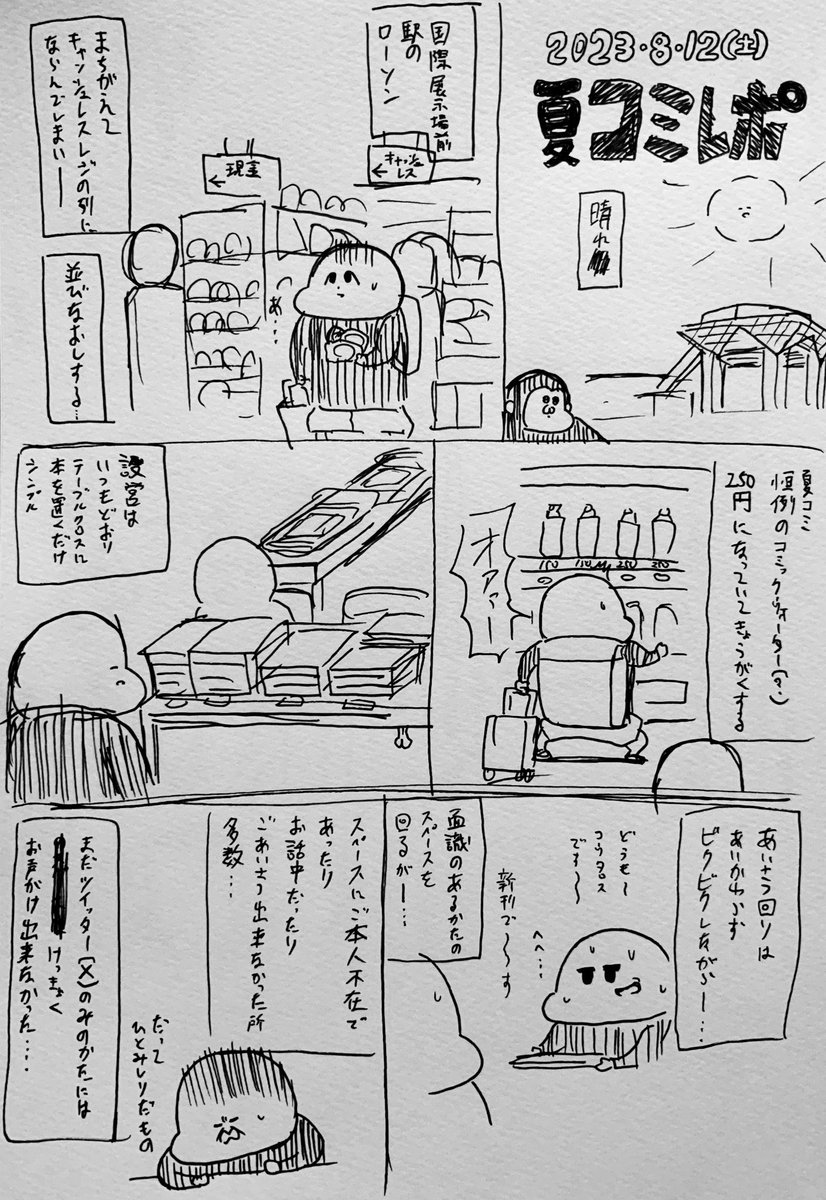 2023・8・12(土)
夏コミレポ
晴れ
国際展示場前
駅の
ローソン
キャッシュ
レス
←
現金
←
あ…
まちがえて
キャッシュレスレジの列に
ならんでしまいー
並びなおしする…
夏コミ
恒例のコミックウォーター(マ.)
250円になっていてきょうがくする
オアァー
設営は
いつもどおり
テーブルクロスに
本を置くだけ
シンプル
あいさつ回りは
あいかわらず
ビクビクしながらー…
どうも〜
コウタロス
です〜〜
へへ…
新刊で〜〜す
面識のあるかたの
スペースを
回るがー…
スペースにご本人不在で
あったり
お話中だったり
ごあいさつ出来なかった所
多数…
だって
ひとみしりだもの
まだツイッター(X)のみのかたには
けっきょく
お声がけ出来なかった….